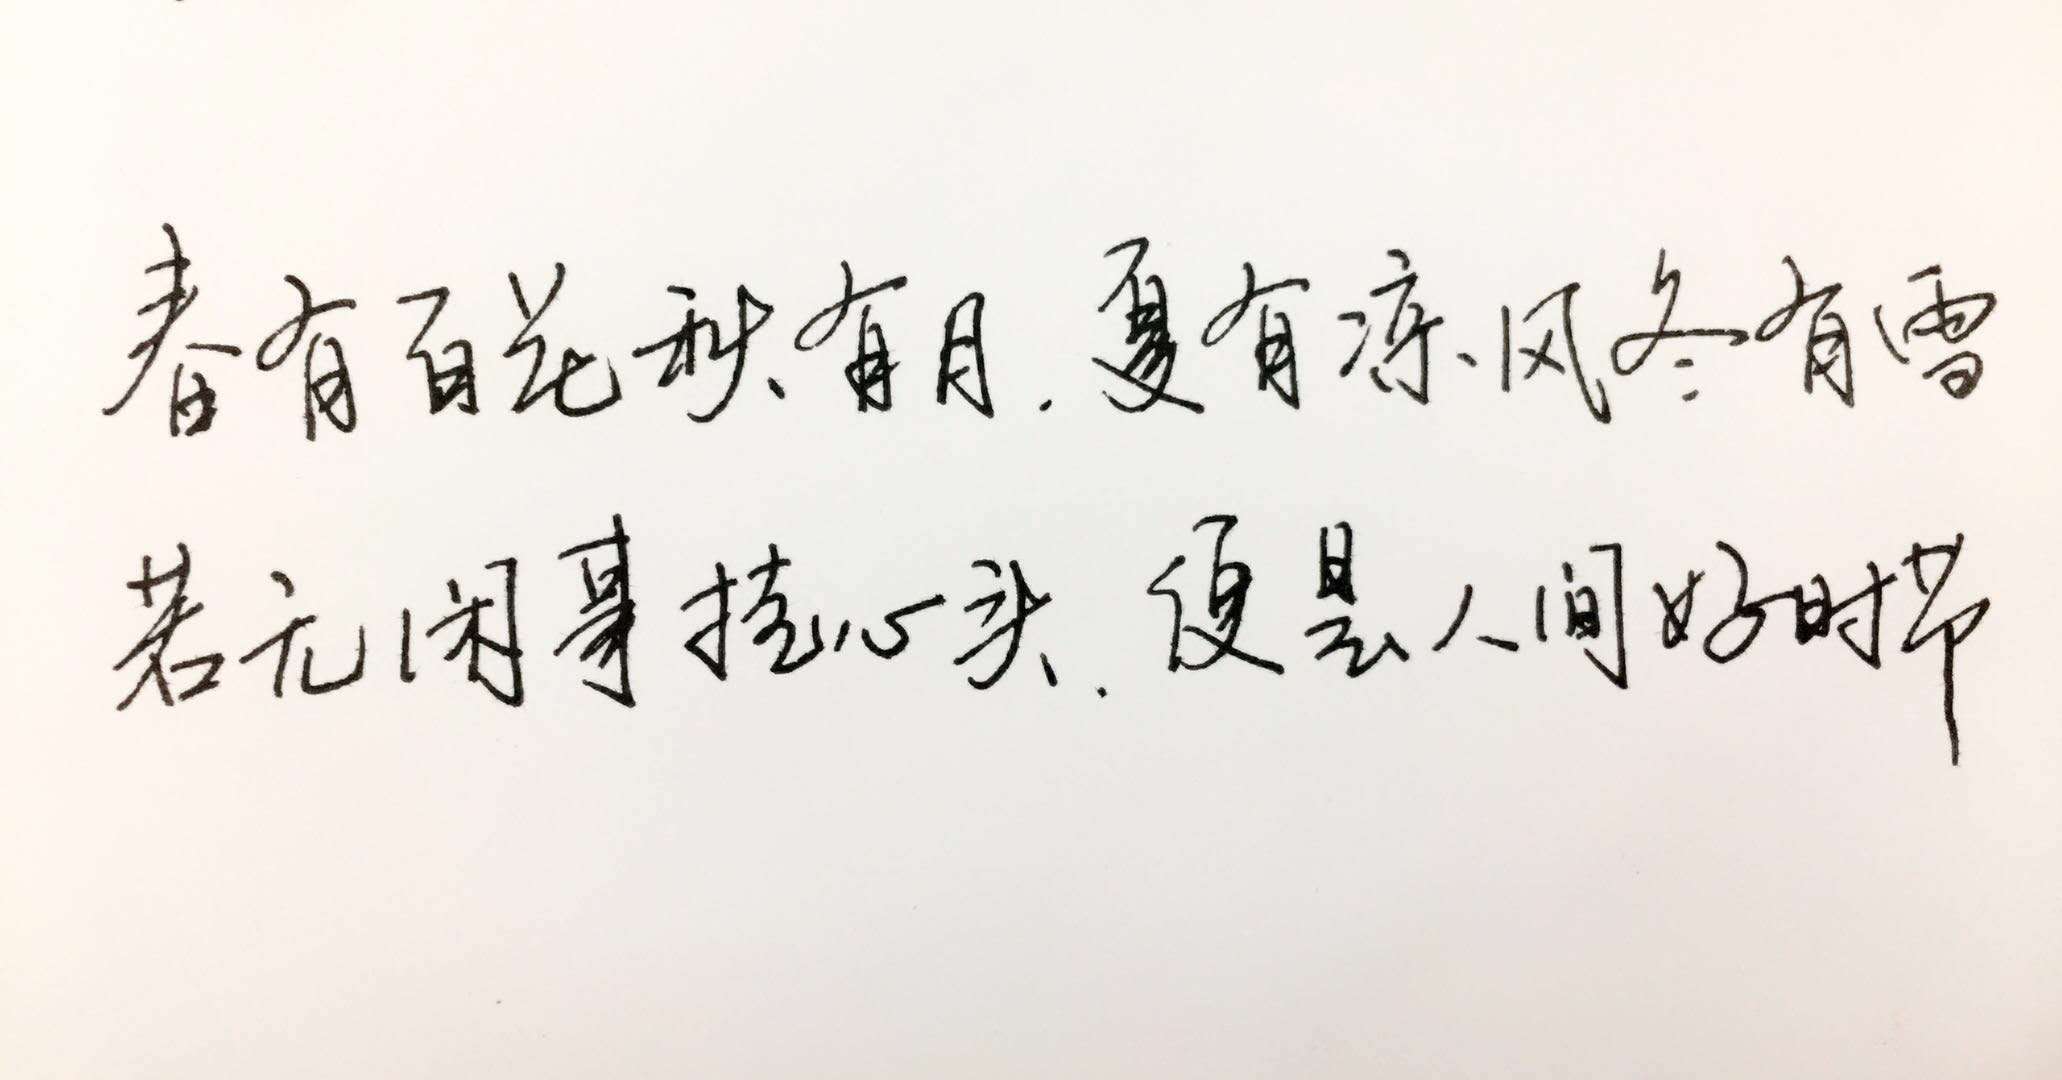 春有百花秋有月.夏有凉风冬有雪
若无闲事挂心头.便是人间好时节